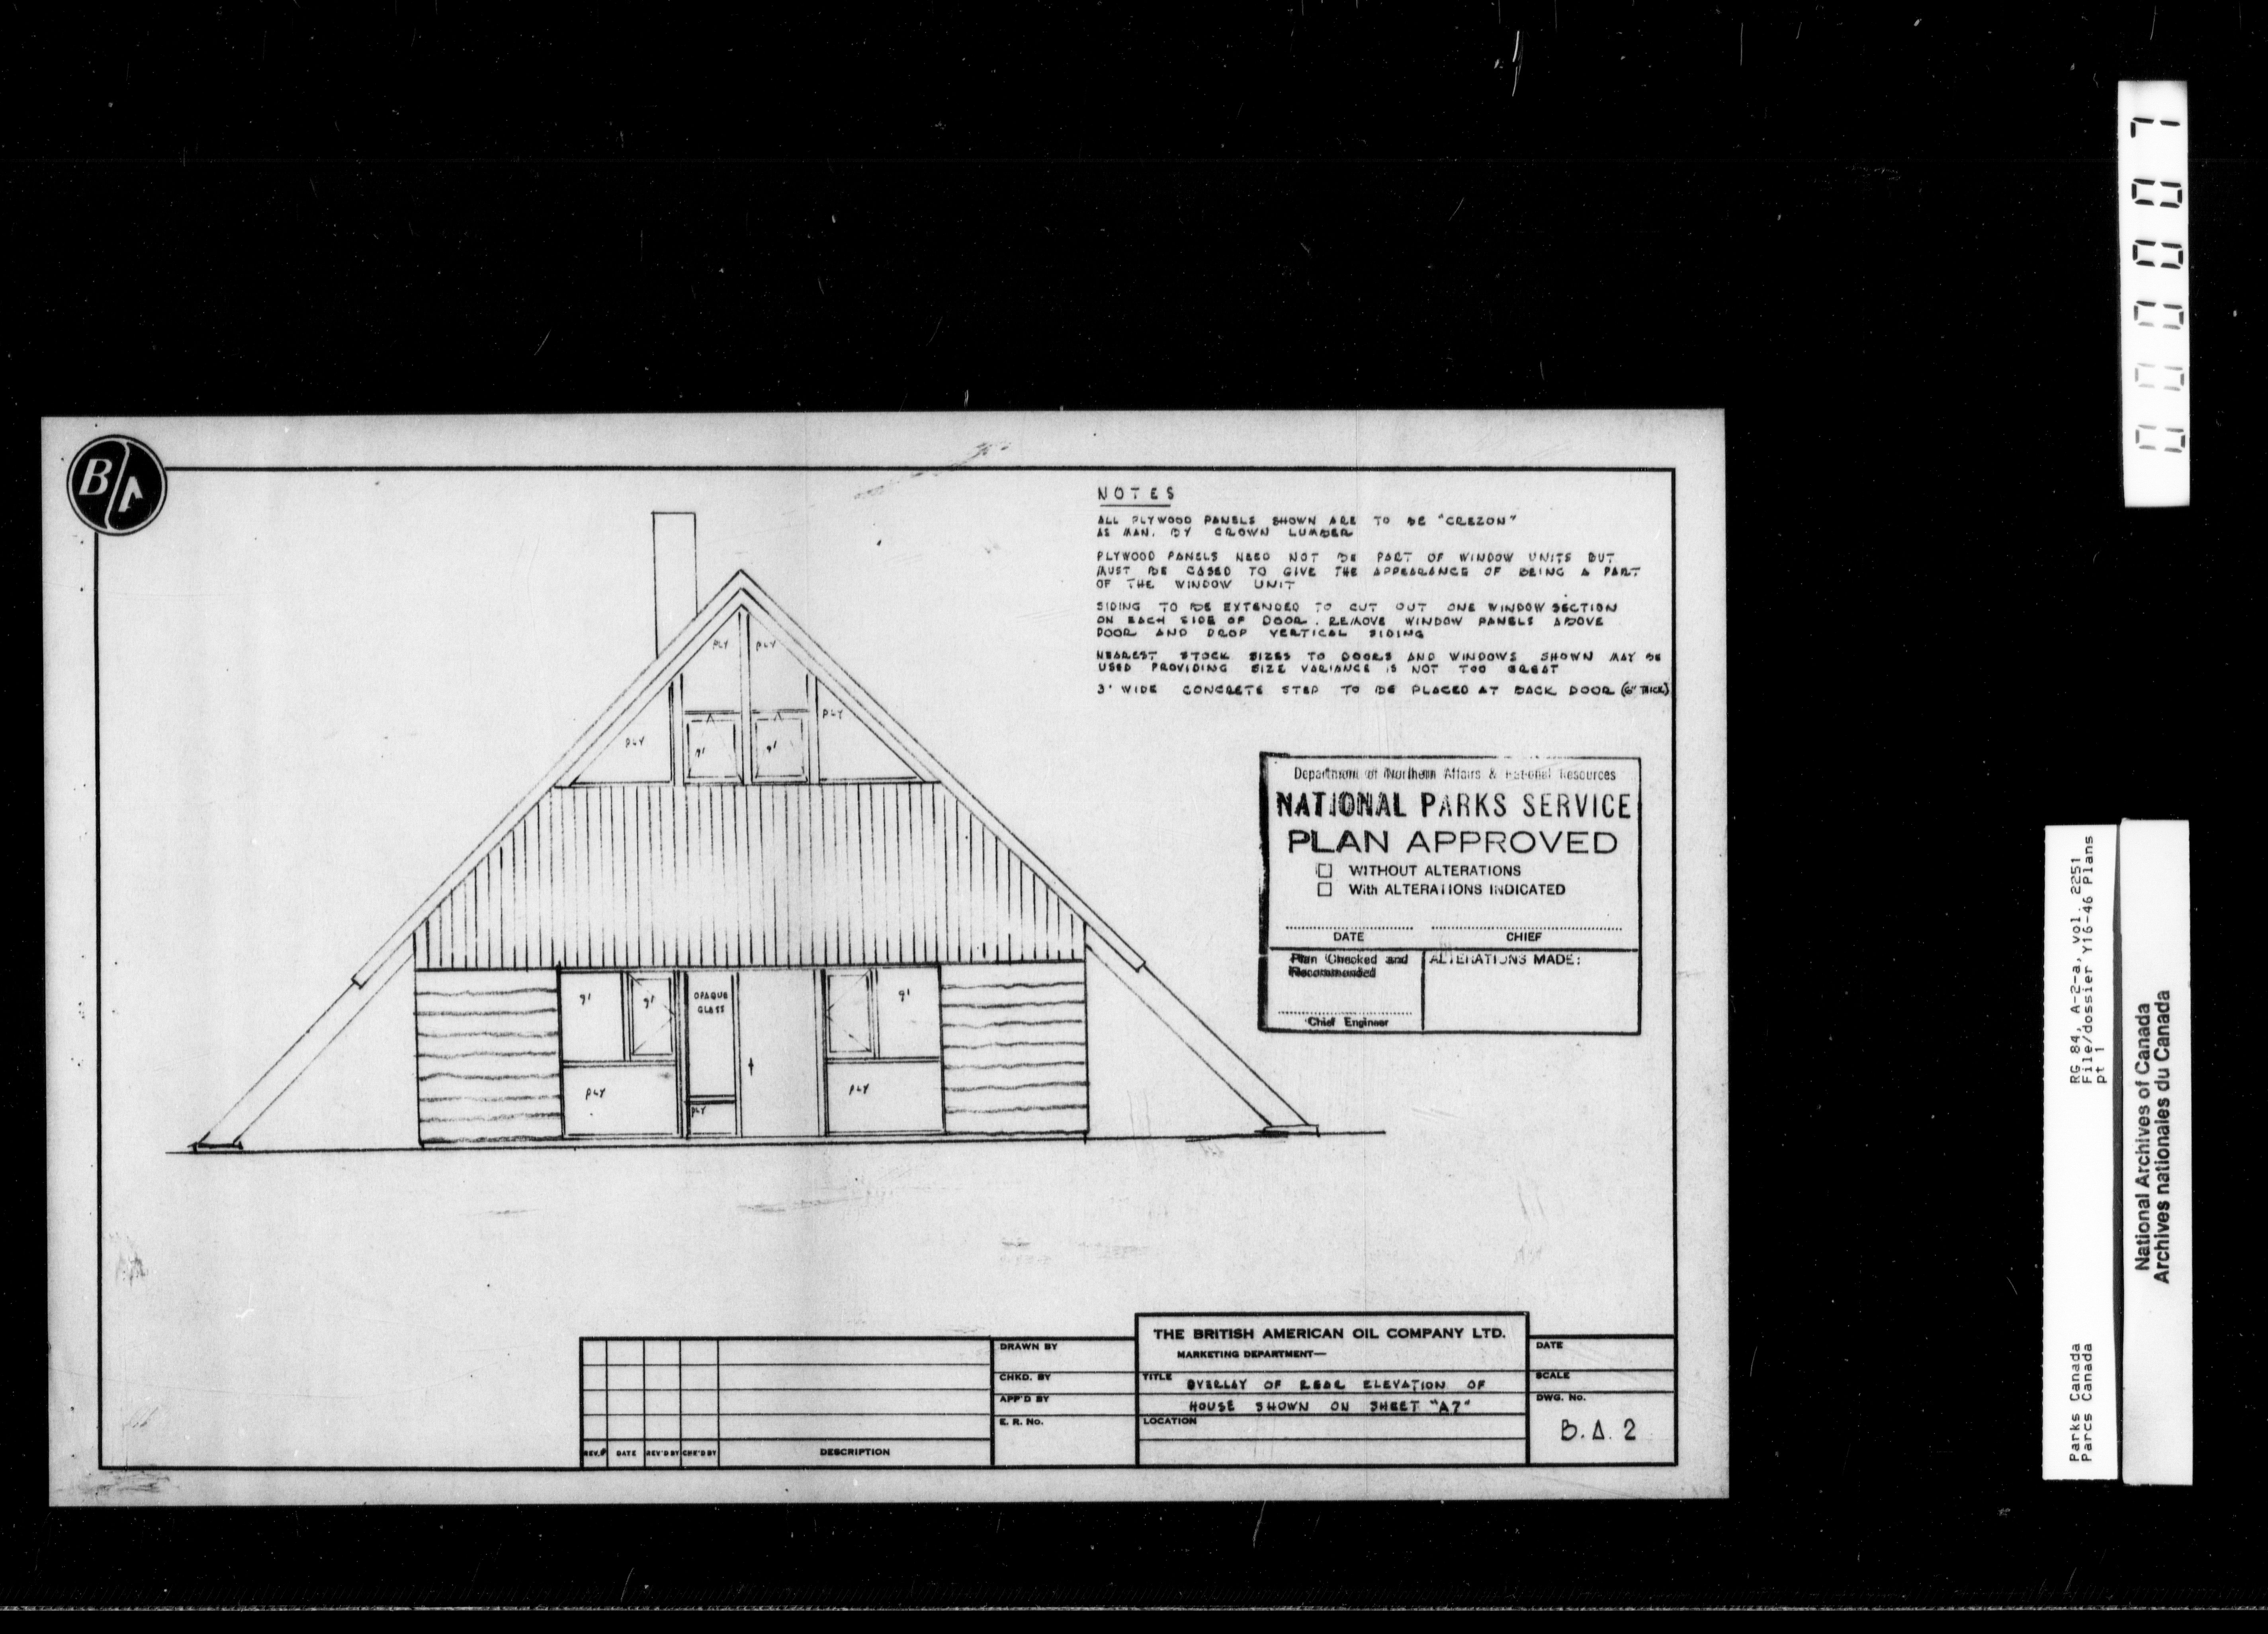 B/A
NOTES
ALL PLYWOOD PANELS SHOWN ARE TO BE "CREZON"
AS MAN. BY CROWN LUMBER
PLYWOOD PANELS NEED NOT BE PART OF WINDOW UNITS BUT
MUST BE CASED TO GIVE THE APPEARANCE OF BEING A PART
OF THE WINDOW UNIT
SIDING TO BE EXTENDED TO CUT OUT ONE WINDOW SECTION
ON EACH SIDE OF DOOR. REMOVE WINDOW PANELS ABOVE
DOOR AND DROP VERTICAL SIDING
NEAREST STOCK SIZES TO DOORS AND WINDOWS SHOWN MAY BE
USED PROVIDING SIZE VARIANCE IS NOT TOO GREAT
3' WIDE CONCRETE STEP TO BE PLACED AT BACK DOOR (6" THICK)
PLY PLY
PLY PLY
gl gl
gl gl OPAQUE gl
GLASS
PLY PLY
PLY
Department of Northern Affairs & National Resources
NATIONAL PARKS SERVICE
PLAN APPROVED
WITHOUT ALTERATIONS
With ALTERATIONS INDICATED
DATE CHIEF
Plan Checked and
Recommended
ALTERATIONS MADE:
Chief Engineer
REV.# DATE REV'D BY CHK'D BY DESCRIPTION
DRAWN BY
CHKD. BY
APP'D BY
E. R. No.
THE BRITISH AMERICAN OIL COMPANY LTD.
MARKETING DEPARTMENT—
TITLE OVERLAY OF REAR ELEVATION OF
HOUSE SHOWN ON SHEET "A7"
LOCATION
DATE
SCALE
DWG. No.
B.A. 2
000007
Parks Canada
Parcs Canada
RG 84, A-2-a, vol. 2251
File/dossier Y16-46 Plans
pt 1
National Archives of Canada
Archives nationales du Canada